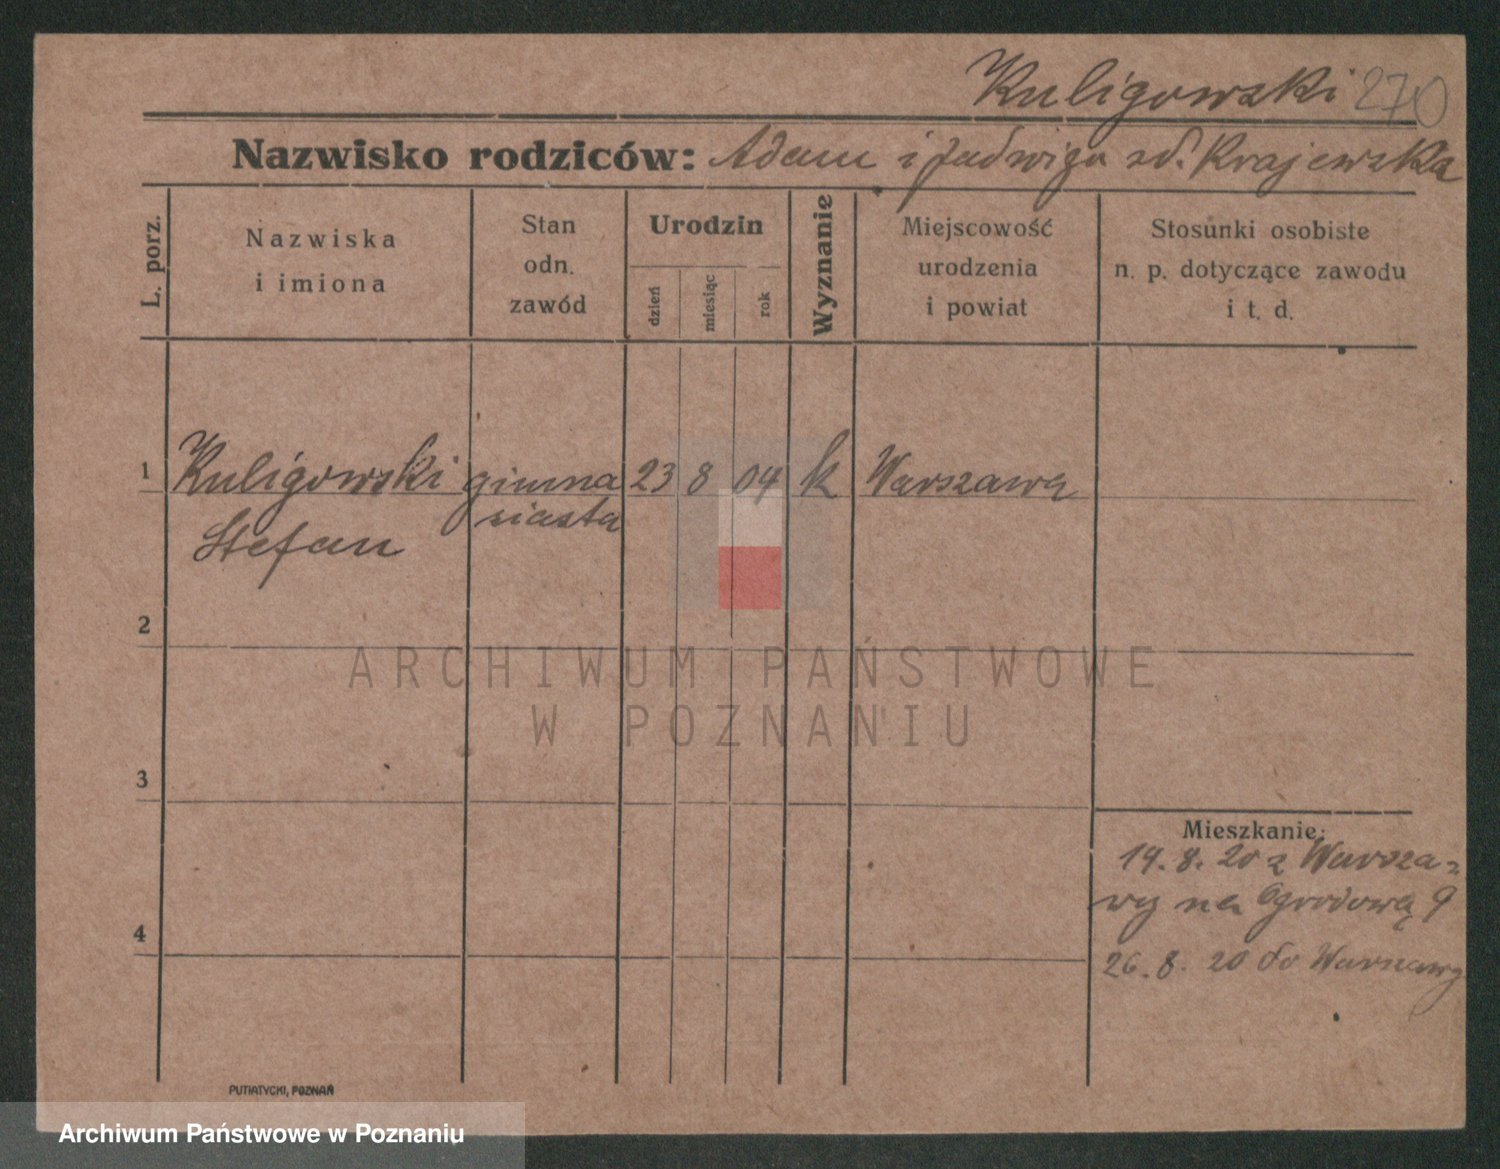 Kuligowski 270
Nazwisko rodziców: Adam i Jadwiga zd. Krajewska
L. porz.
Nazwiska
i imiona
Stan
odn.
zawód
Urodzin
dzień
miesiąc
rok
Wyznanie
Miejscowość
urodzenia
i powiat
Stosunki osobiste
n. p. dotyczące zawodu
i t. d.
1 Kuligowski gimna 23 8 04 k Warszawa
Stefan
ziasta
2
ARCHIWUM PAŃSTWOWE
W POZNANIU
3
Mieszkanie:
19.8.20 z Warsza-
wy na Ogrodową 9
4
26.8.20 do Warszawy
PUTIATYCKI, POZNAŃ
Archiwum Państwowe w Poznaniu